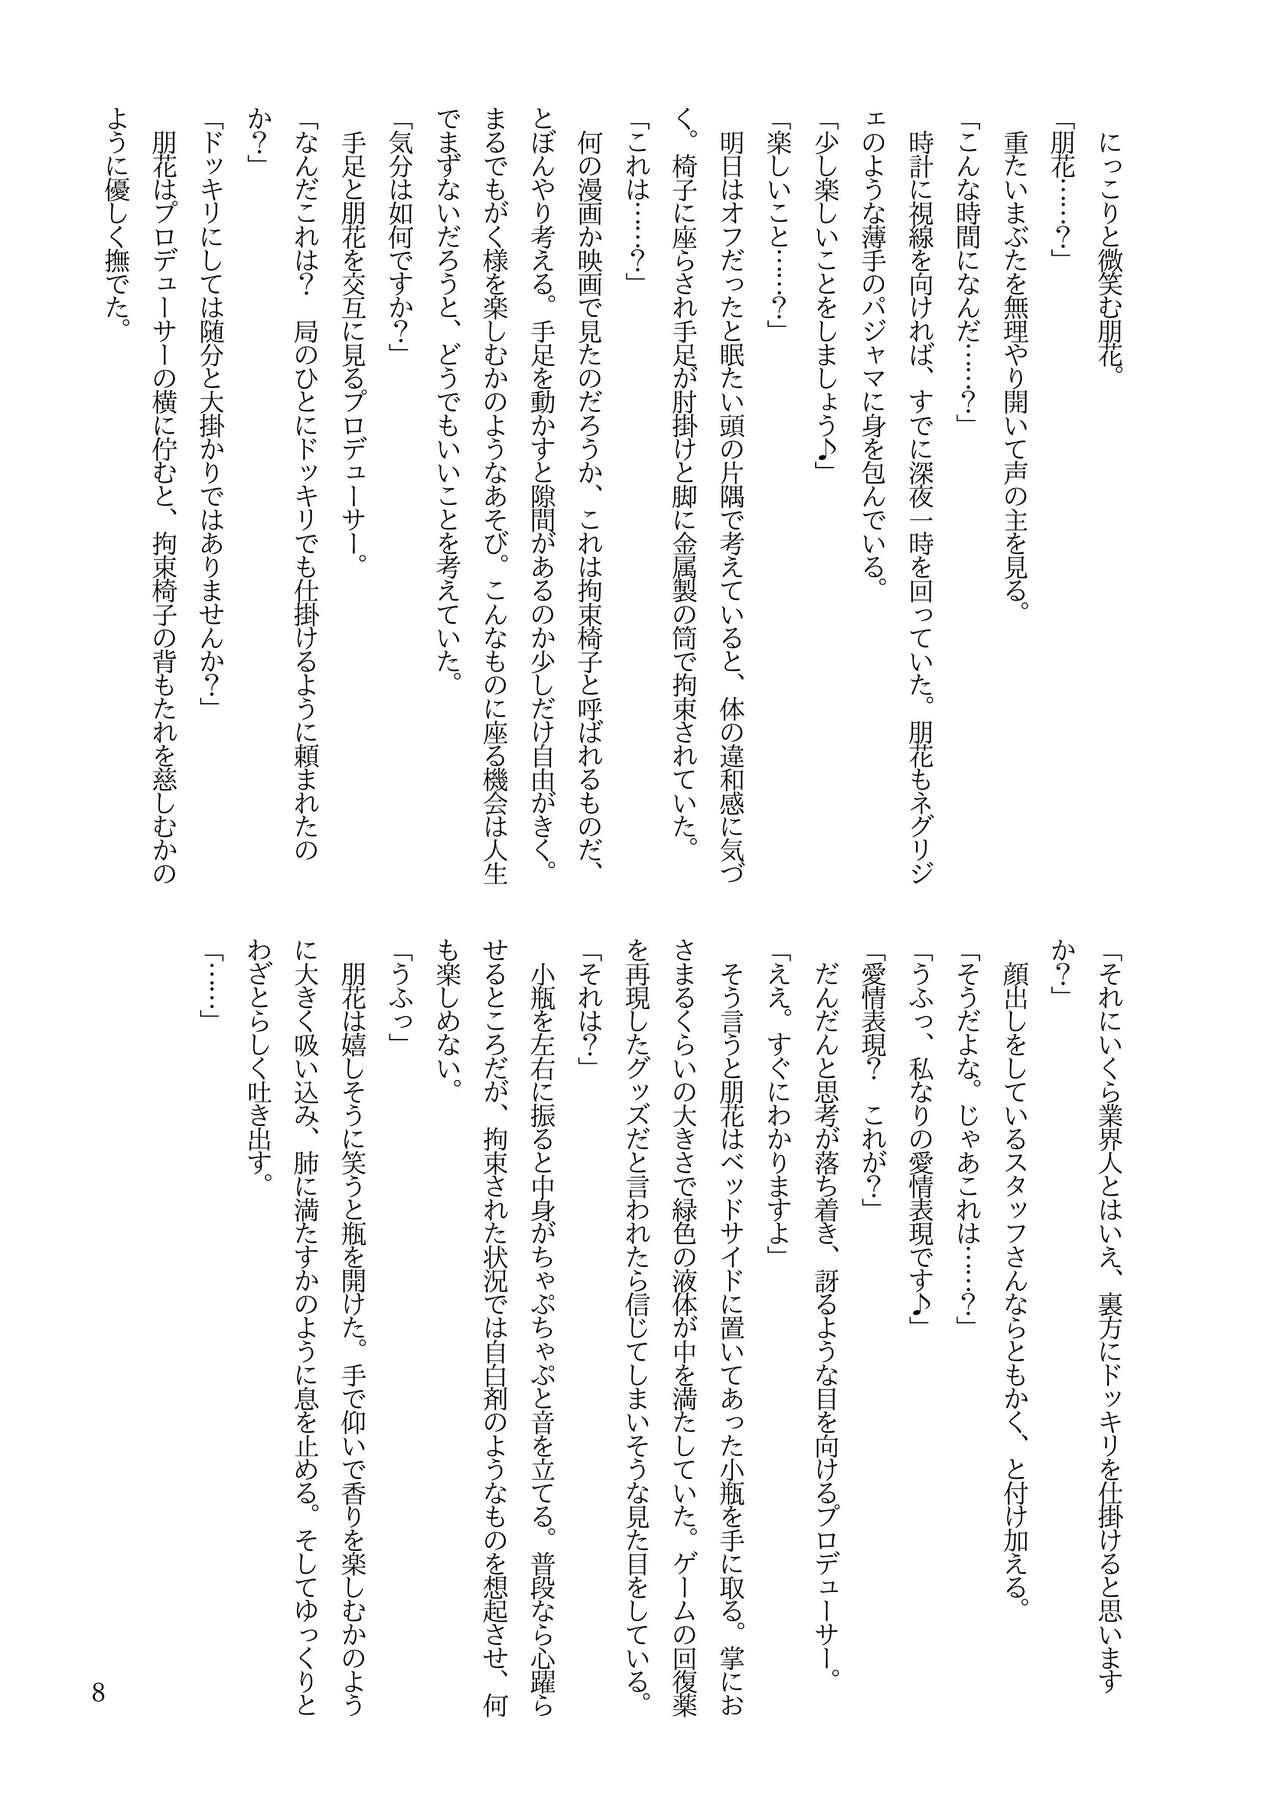 にっこりと微笑む朋花。
「朋花……？」
重たいまぶたを無理やり開いて声の主を見る。
「こんな時間になんだ……？」
時計に視線を向ければ、すでに深夜一時を回っていた。朋花もネグリジ
ェのような薄手のパジャマに身を包んでいる。
「少し楽しいことをしましょう♪」
「楽しいこと……？」
明日はオフだったと眠たい頭の片隅で考えていると、体の違和感に気づ
く。椅子に座らされ手足が肘掛けと脚に金属製の筒で拘束されていた。
「これは……？」
何の漫画か映画で見たのだろうか、これは拘束椅子と呼ばれるものだ、
とぼんやり考える。手足を動かすと隙間があるのか少しだけ自由がきく。
まるでもがく様を楽しむかのようなあそび。こんなものに座る機会は人生
でまずないだろうと、どうでもいいことを考えていた。
「気分は如何ですか？」
手足と朋花を交互に見るプロデューサー。
「なんだこれは？　局のひとにドッキリでも仕掛けるように頼まれたの
か？」
「ドッキリにしては随分と大掛かりではありませんか？」
朋花はプロデューサーの横に佇むと、拘束椅子の背もたれを慈しむかの
ように優しく撫でた。
「それにいくら業界人とはいえ、裏方にドッキリを仕掛けると思います
か？」
顔出しをしているスタッフさんならともかく、と付け加える。
「そうだよな。じゃあこれは……？」
「うふっ、私なりの愛情表現です♪」
「愛情表現？　これが？」
だんだんと思考が落ち着き、訝るような目を向けるプロデューサー。
「ええ。すぐにわかりますよ」
そう言うと朋花はベッドサイドに置いてあった小瓶を手に取る。掌にお
さまるくらいの大きさで緑色の液体が中を満たしていた。ゲームの回復薬
を再現したグッズだと言われたら信じてしまいそうな見た目をしている。
「それは？」
小瓶を左右に振ると中身がちゃぷちゃぷと音を立てる。普段なら心躍ら
せるところだが、拘束された状況では自白剤のようなものを想起させ、何
も楽しめない。
「うふっ」
朋花は嬉しそうに笑うと瓶を開けた。手で仰いで香りを楽しむかのよう
に大きく吸い込み、肺に満たすかのように息を止める。そしてゆっくりと
わざとらしく吐き出す。
「……」
8